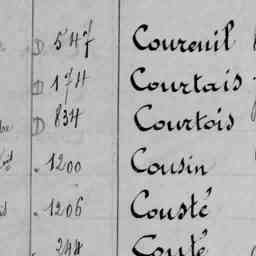 D 547 Coureuil
D 174 Courtais
D 834 Courtois
. 1200 Cousin
. 1206 Cousté
. 244 Couté